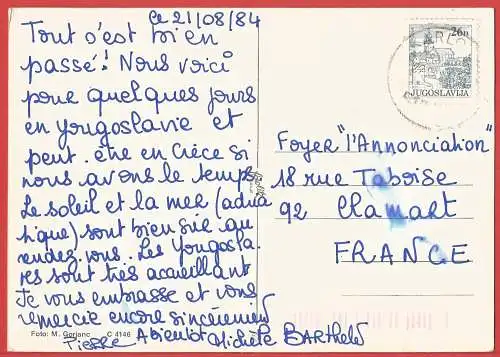 le 21/08/84
Tout s'est bien
passé! Nous voici
pour quelques jours
en yougoslavie et
peut-être en Grèce si
nous avons le temps
Le soleil et la mer (adria
tique) sont bien sûr au
rendez-vous. Les Yougosla
ves sont très accueillant
Je vous embrasse et vous
remercie encore sincèrement
A bientôt
Pierre Michèle
Foto: M. Gerjanc C 4146
26 D
JUGOSLAVIJA
Foyer "l'Annonciation"
18 rue Taboise
92 Clamart
FRANCE